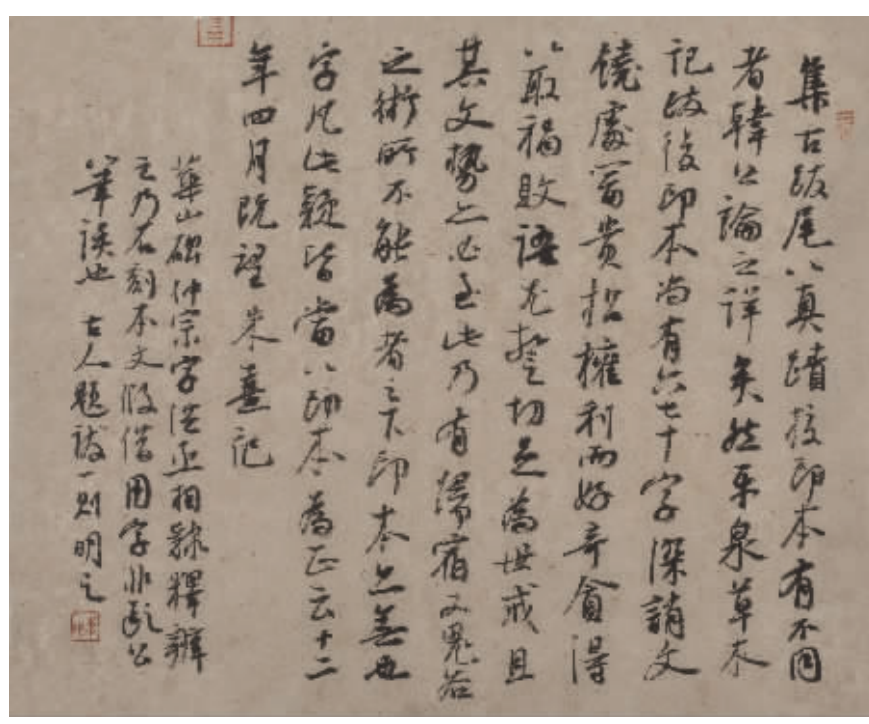 集古跋尾以真蹟校印本有不同
者韓公論之詳矣然平泉草木
記跋後印本尚有六七十字深誚文
饒處富貴招權利而好奇貪得
以取禍敗語尤警切足為世戒且
其文勢亦必至此乃有歸宿又鬼谷
之術所不能為者之下印本亦無也
字凡此疑皆當以印本為正云十二
年四月既望朱熹記
華山碑仲宗字洪丞相隸釋辨
之乃石刻本文假借用字非歐公
筆誤也 古人題跋一則 明之